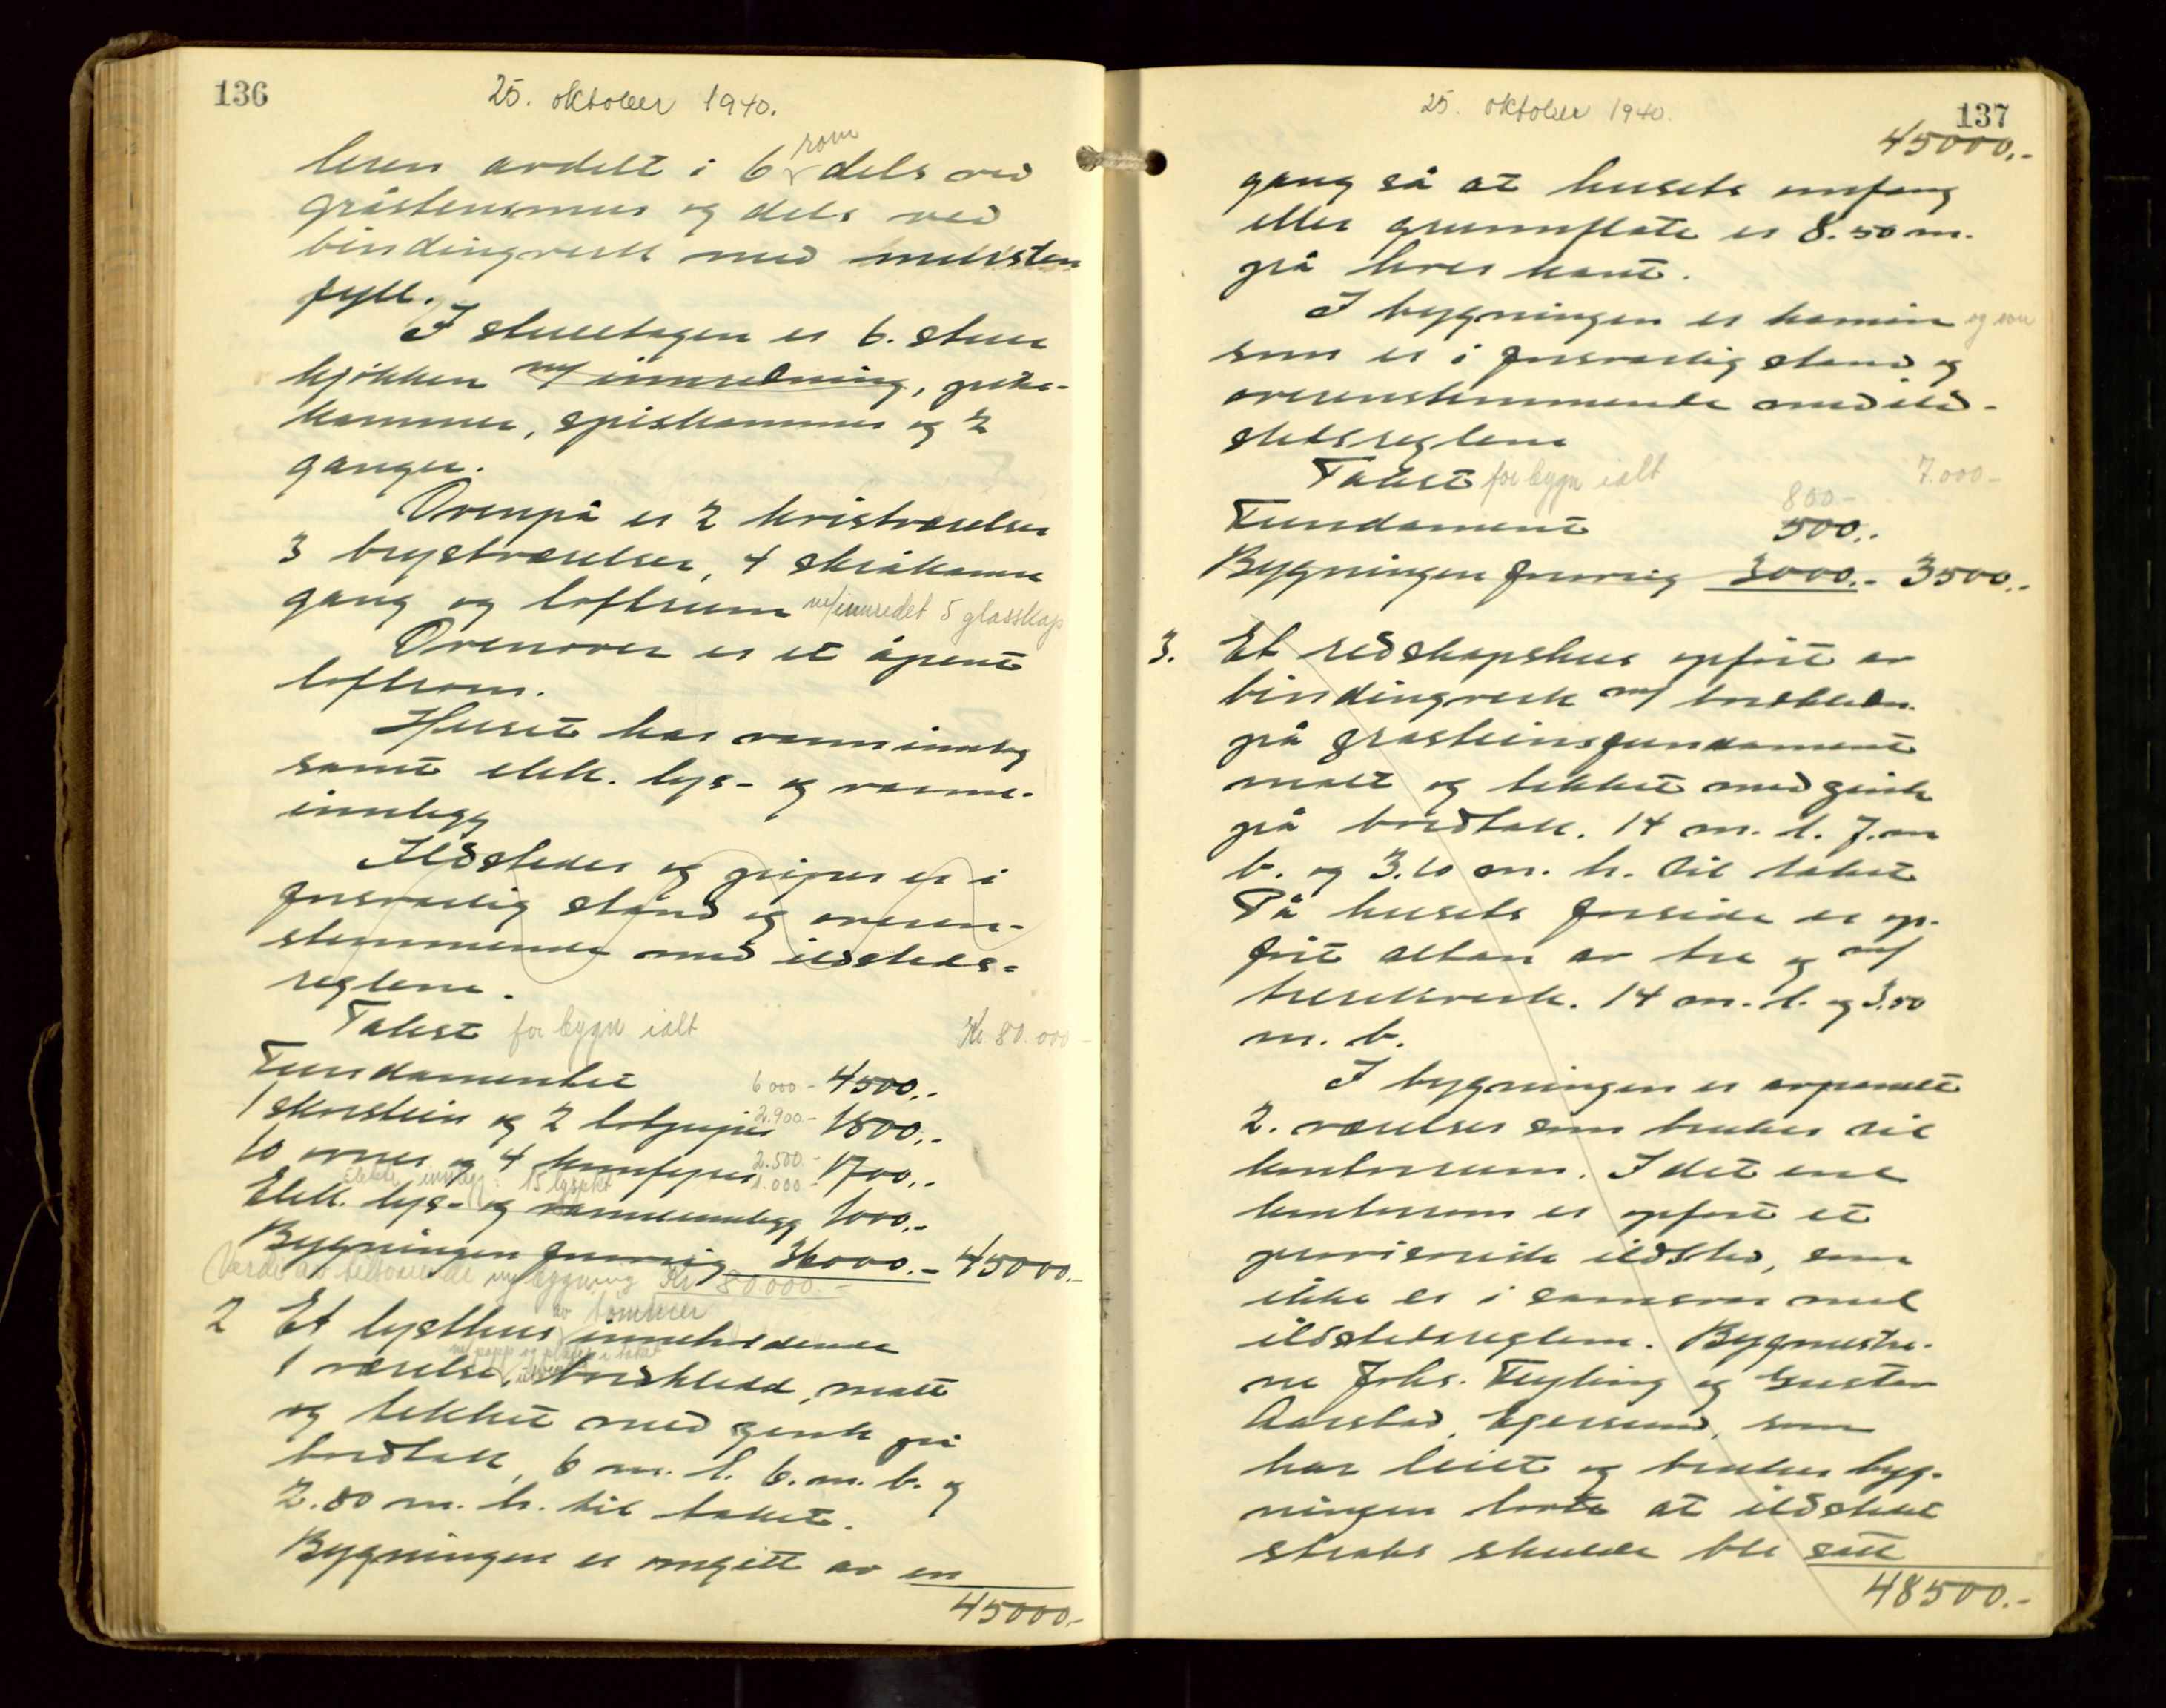 136
25. oktober 1940.
rom
leren avdelt i 6 dels ved
gråstensmur og dels ved
bindingverk med mursten
fyll.
I stueetagen er 6. stuer
kjøkken m/ innredning, pike-
kammer, spiskammer og 2
ganger.
Ovenpå er 2 kvistværelser
3 brystværelser, 4 skråkammer
gang og loftsrum m/innredet 5 glasskap
Ovenover er et åpent
loftsrom.
Huset har vanninnlegg
samt elek. lys- og varme-
innlegg
Ildsteder og piper er i
forsvarlig stand og overen-
stemmende med ildsteds-
reglene.
Takst for bygn ialt Kr. 80.000-
Fundamentet 6000- 4500.-
1 skorstein og 2 2.900.- 1800.-
10 ovner og 4 2.500.- 1700.-
innlegg: 15 lyspkt 1.000-
Elek. lys- og varmeinnlegg 1000.-
Bygningen forøvrig 36000.- 45000.-
Verdi av tilsvarende ny bygning Kr 80.000.-
av tømmer
2 Et lysthus inneholdende
m/ papp og plater i taket
1 værelse, utvendig bordkledd, malt
og tekket med zink på
bordtak, 6 m. l. 6. m. b. og
2.80 m. h. til taket.
Bygningen er omgitt av en
45000.-
25. oktober 1940.
137
45000.-
gang så at husets omfang
eller grunnflate er 8.50 m.
på hver kant.
I bygningen er kamin og ovn
som er i forsvarlig stand og
overenstemmende med ild-
stedsreglene
Takst for bygn ialt 7.000-
800-
Fundament 500.-
Bygningen forøvrig 3000.- 3500.-
3. Et redskapshus opført av
bindingverk m/ bordkledn.
på gråsteinsfundament
malt og tekket med zink
på bordtak. 14 m. l. 7. m
b. og 3.10 m. h. til taket
På husets forside er op-
ført altan av tre og m/
trerekverk. 14 m. l. og 3.50
m. b.
I bygningen er avpanelt
2. værelser som brukes til
kontorrum. I det ene
kontorrom er opført et
provisorisk ildsted, som
ikke er i samsvar med
ildstedsreglene. Bygmestre-
ne Johs. Tryling og Gustav
Aarstad, Egersund, som
har leiet og bruker byg-
ningen lovte at ildstedet
straks skulde bli satt
48500.-